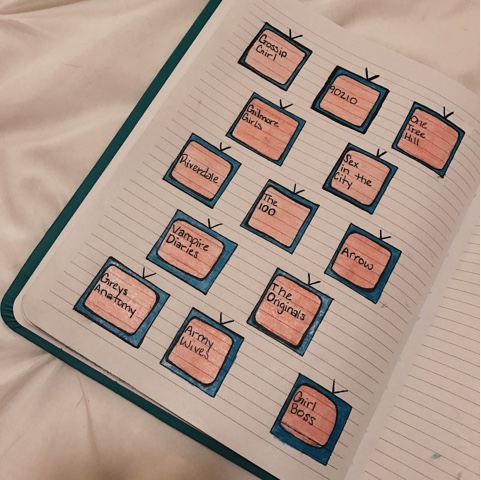 Gossip
Girl
90210
One
Tree
Hill
Gilmore
Girls
Sex
in the
City
Riverdale
The
100
Arrow
Vampire
Diaries
The
Originals
Greys
Anatomy
Army
Wives
Girl
Boss